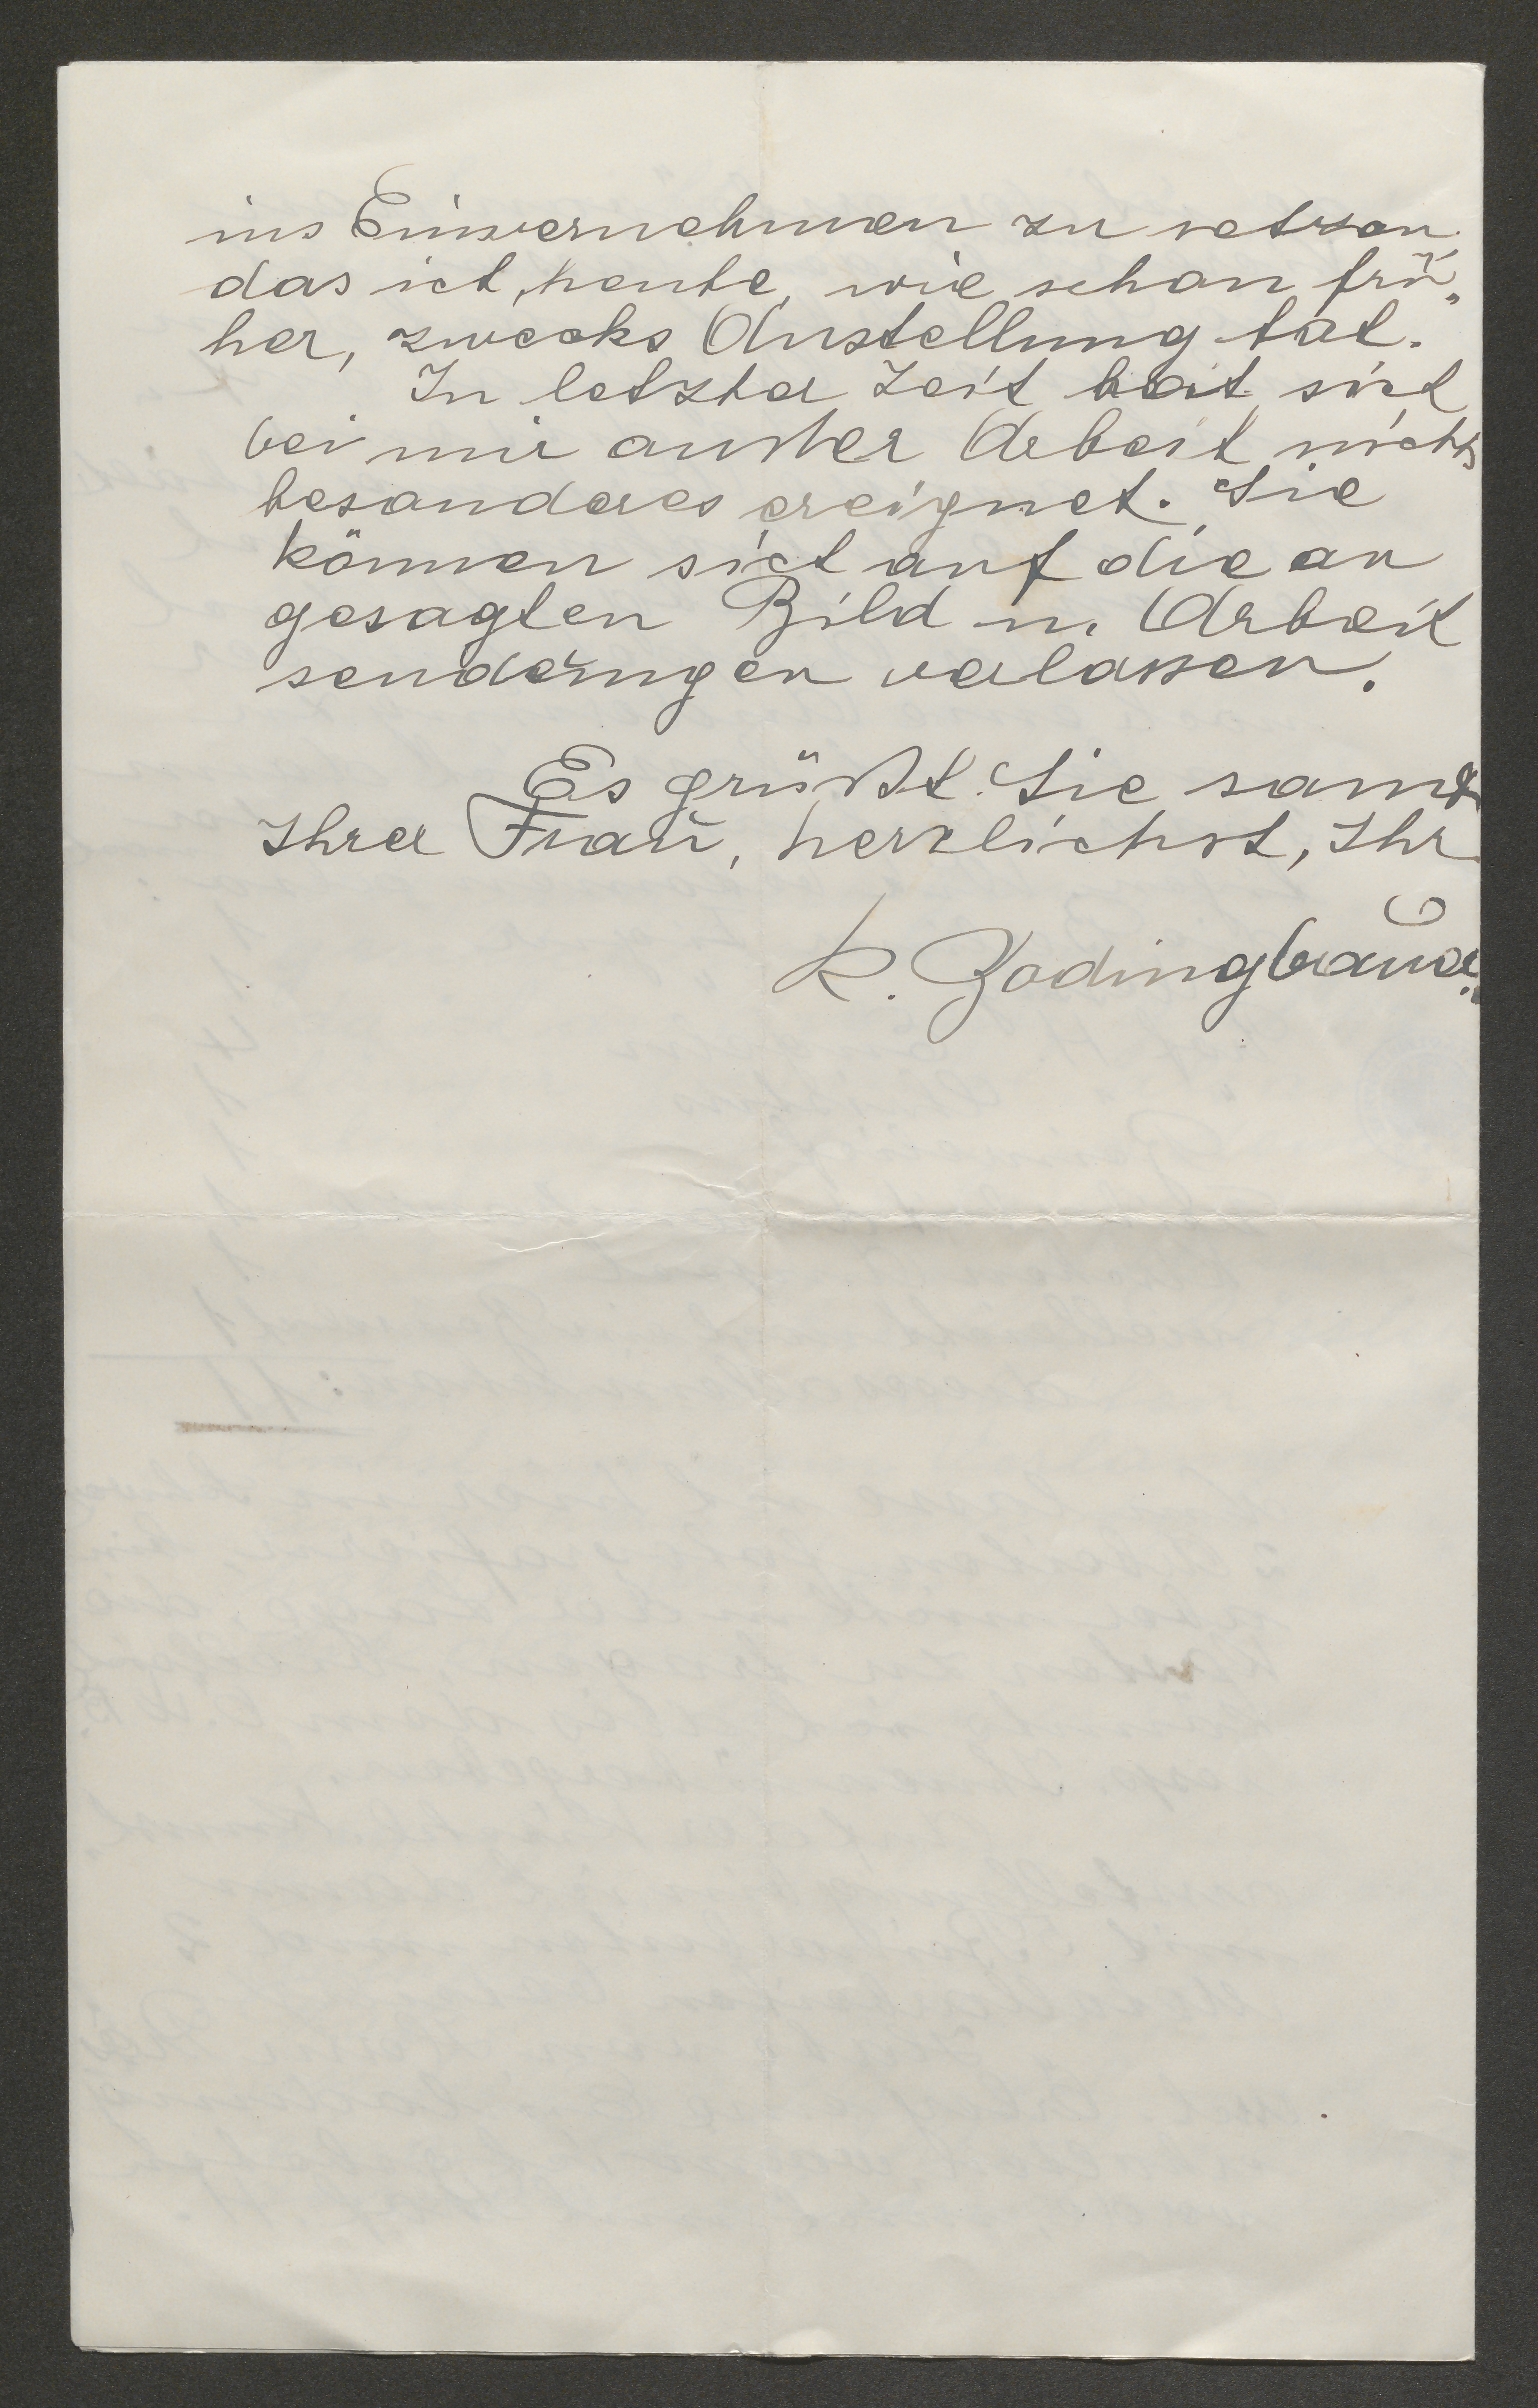 ins Einvernehmen zu setzen,
das ich, heute, wie schon frü„
her, zwecks Anstellung tat.
In letzter Zeit hat sich
bei mir außer Arbeit nichts
besonderes ereignet. Sie
können sich auf die an
gesagten Bild u. Arbeit
sendungen verlassen.
Es grüßt Sie samt
Ihrer Frau, herzlichst, Ihr
K.